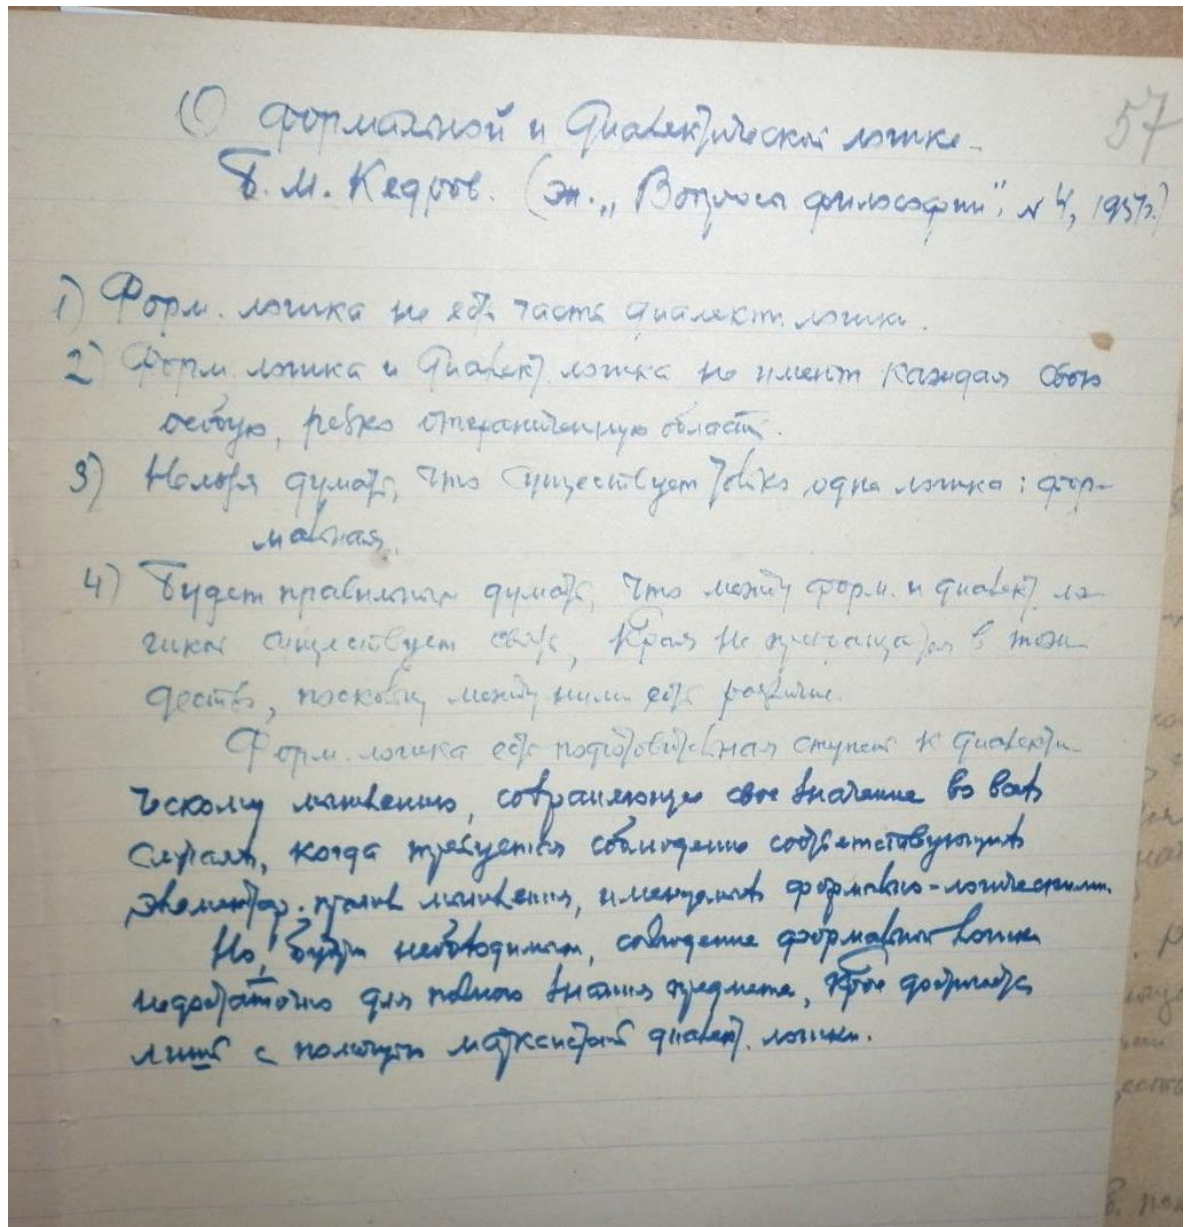 57
О формальной и диалектической логике.
Б. М. Кедров. (ж. „Вопросы философии", №4, 195 г.)
1) Форм. логика не есть часть диалект. логики.
2) Форм. логика и диалект. логика не имеют каждая свою
особую, резко отграниченную область.
3) Нельзя думать, что существует только одна логика: фор-
мальная.
4) Будет правильным думать, что между форм. и диалект. ло-
гикой существует связь, края не превращается в тож-
дество, поскольку между ними есть различие.
Форм. логика есть подготовительная ступень к диалекти-
ческому мышлению, сохраняющую свое значение во всех
случаях, когда требуется соблюдение соответствующих
элементар. правил мышления, именуемых формально-логическими.
Но, будучи необходимым, соблюдение формальной логики
недостаточно для полного знания предмета, крое достигается
лишь с помощью марксистской диалект. логики.